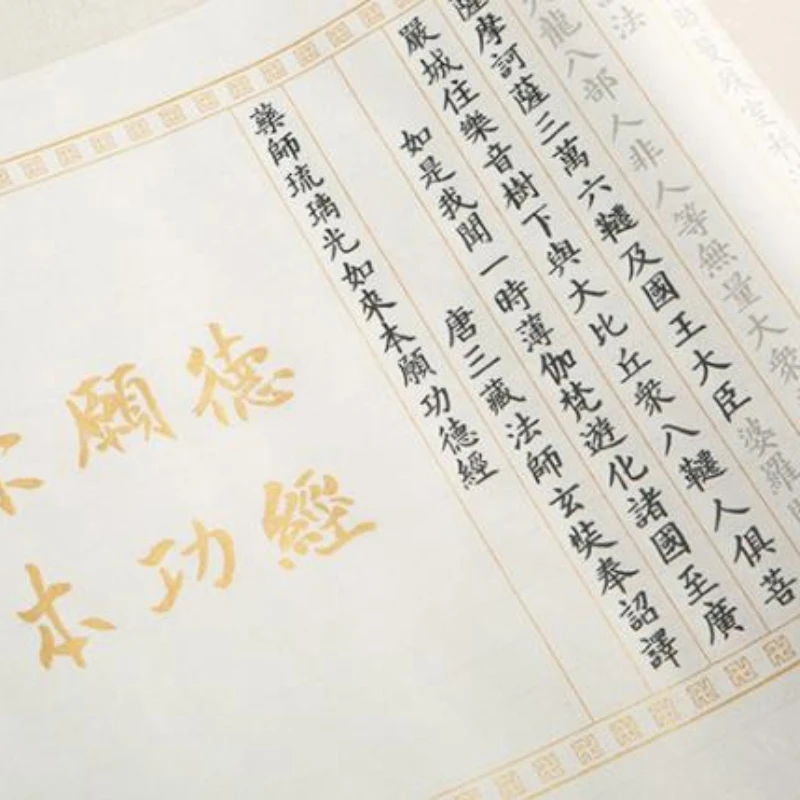 來本
願功
德經
藥師琉璃光如來本願功德經
唐三藏法師玄奘奉詔譯
如是我聞一時薄伽梵遊化諸國至廣
嚴城住樂音樹下與大比丘衆八韆人俱菩
薩摩訶薩三萬六韆及國王大臣婆羅
天龍八部人非人等無量大衆
法